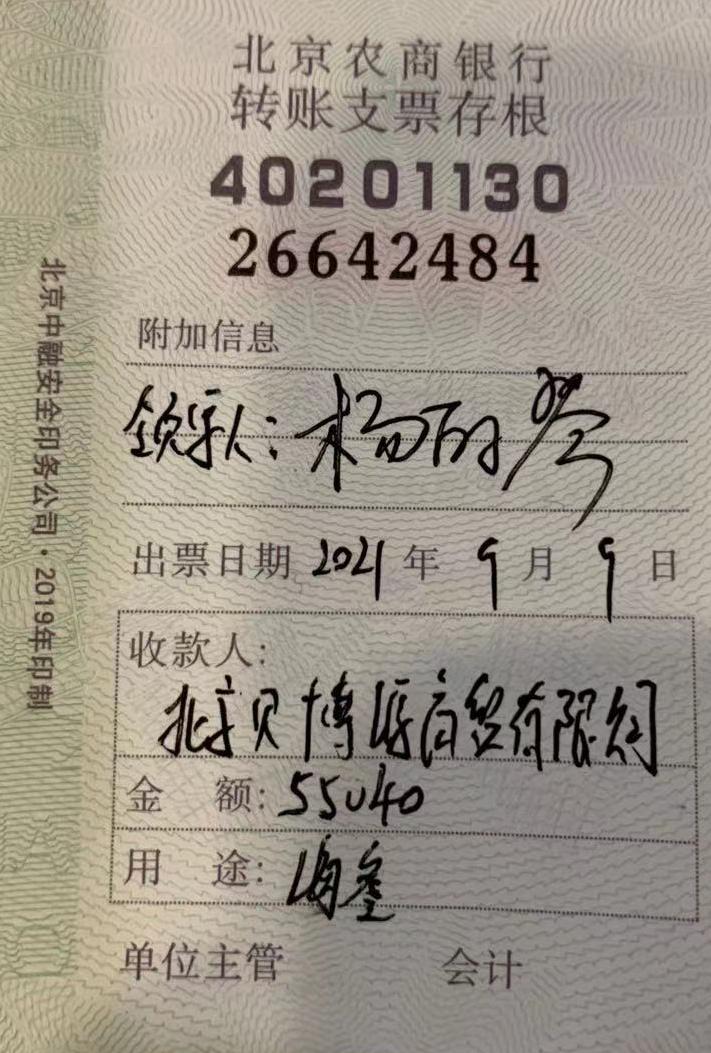 北京农商银行
转账支票存根
40201130
26642484
附加信息
领取人：杨
出票日期 2021 年 9 月 9 日
收款人：
北京贝博 商贸有限公司
金 额：55040
用 途：海参
单位主管 会计
北京中融安全印务公司·2019年印制